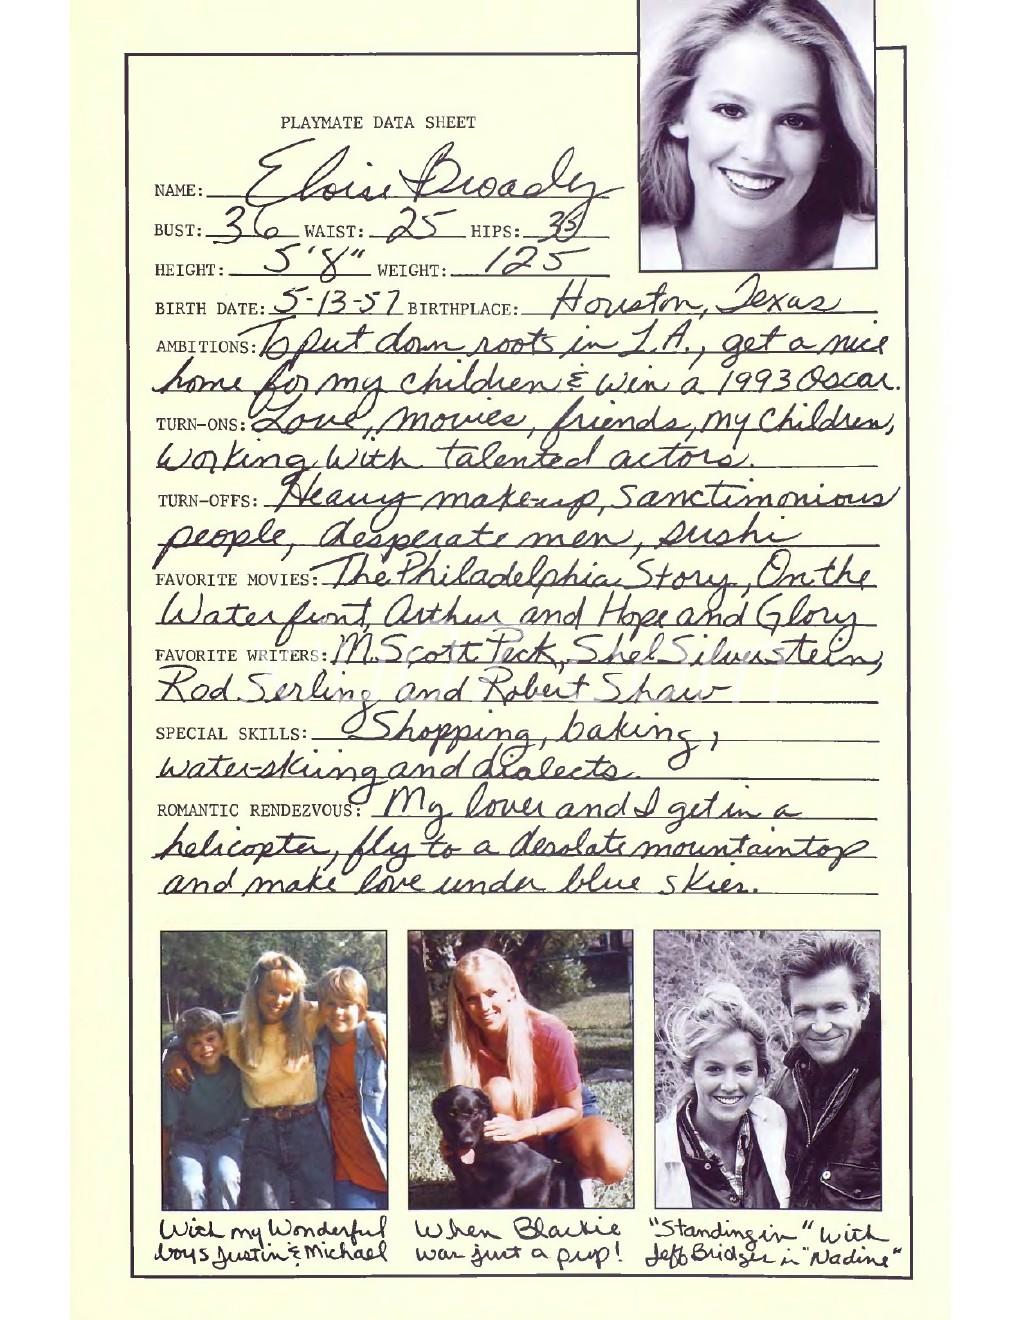 PLAYMATE DATA SHEET
NAME: Eloise Broady
BUST: 36 WAIST: 25 HIPS: 35
HEIGHT: 5'8" WEIGHT: 125
BIRTH DATE: 5-13-57 BIRTHPLACE: Houston, Texas
AMBITIONS: To put down roots in L.A., get a nice
home for my children & win a 1993 Oscar.
TURN-ONS: Love, movies, friends, my children,
working with talented actors.
TURN-OFFS: Heavy make-up, sanctimonious
people, desperate men, sushi
FAVORITE MOVIES: The Philadelphia Story, On the
Waterfront, Arthur and Hope and Glory
FAVORITE WRITERS: M. Scott Peck, Shel Silverstein,
Rod Serling and Robert Shaw
SPECIAL SKILLS: Shopping, baking,
water-skiing and dialects.
ROMANTIC RENDEZVOUS: My lover and I get in a
helicopter, fly to a desolate mountaintop
and make love under blue skies.
With my Wonderful
boys Justin & Michael
When Blackie
was just a pup!
"Standing in" with
Jeff Bridges in "Nadine"